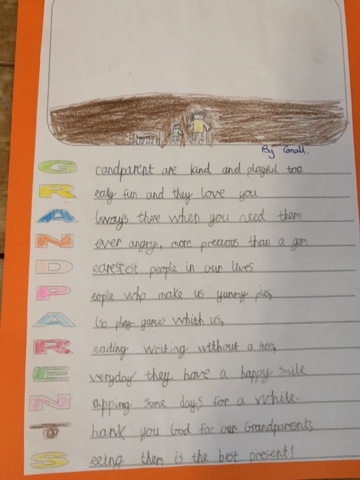 By Conall.
Grandparent are kind and playful too
Realy fun and they love you
Always there when you need them
Never angry, more precious than a gem
Dearestest people in our lives
People who make us yummy pies,
Also play games whith us,
Reading writing without a fuss,
Everyday they have a happy smile
Napping some days for a while.
Thank you God for our Grandparents
Seeing them is the best present!